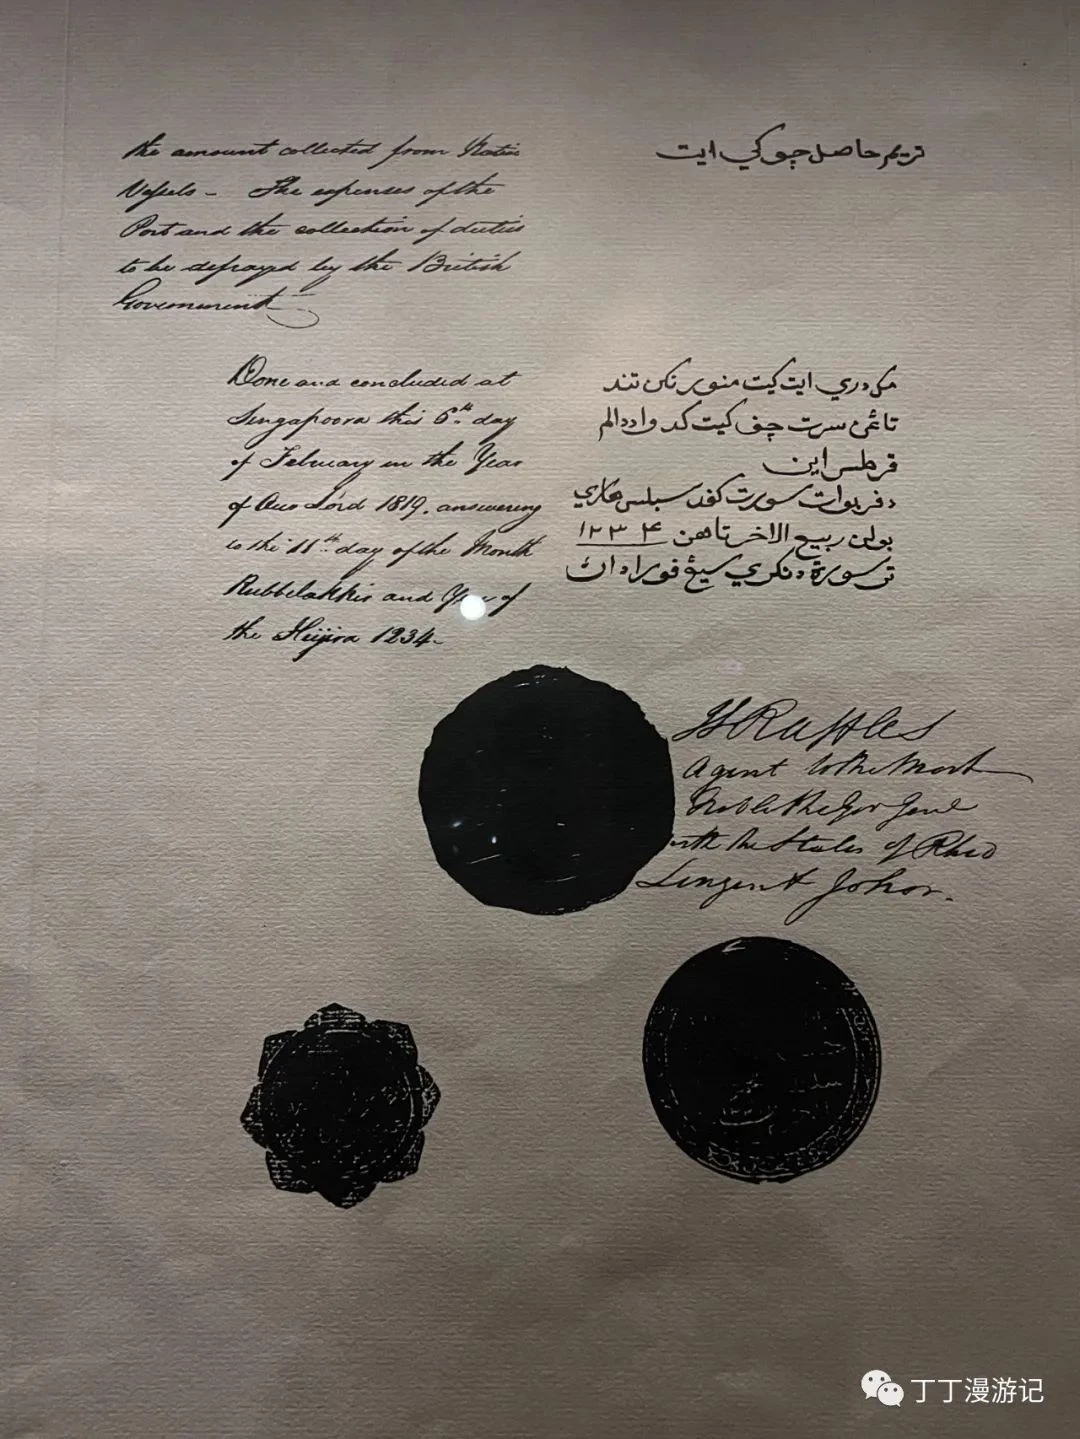 the amount collected from Native
Vessels - The expenses of the
Port and the collection of duties
to be defrayed by the British
Government
تريم حاصل چوكي ايت
Done and concluded at
Singapoora this 6th day
of February in the Year
of Our Lord 1819, answering
to the 11th day of the Month
Rubbelakhir and Year of
the Hujira 1234-
مك دري ايت كيت منورنكن تند
تاڠن سرت چف كيت كدوا ددالم
قرطس اين
دفربوات سورت كفد سبلس هاري
بولن ربيع الاخر تاهن ١٢٣٤
ترسورة دنكري سيڠافورا ادان
TS Raffles
Agent to the Most
Noble the Gov Genl
with the States of Rhio
Lingen & Johor.
丁丁漫游记